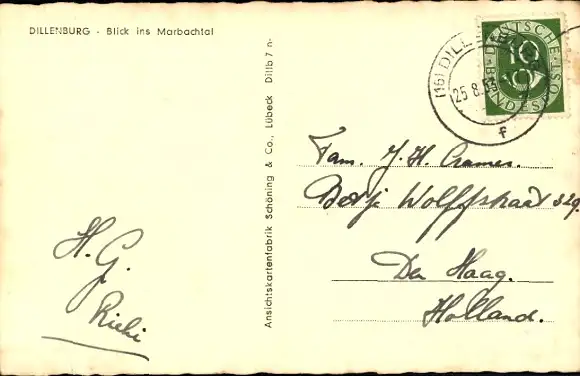 DILLENBURG - Blick ins Marbachtal
H. G.
Riehi
Ansichtskartenfabrik Schöning & Co., Lübeck Dillb 7 n-
(16) DILL
25.8.53
f
DEUTSCHE
10
BUNDESPOST
Fam. J. H. Cramer.
Betje Wolffstraat 329
Den Haag.
Holland.